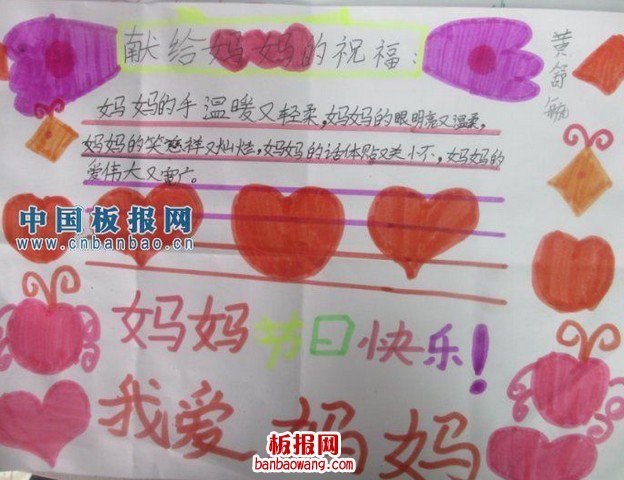 献给妈妈的祝福：
黄
妈妈的手温暖又轻柔，妈妈的眼明亮又温柔，
妈妈的笑慈祥又灿烂，妈妈的话体贴又关不，妈妈的
爱伟大又宽广。
中国板报网
www.cnbanbao.cn
妈妈节日快乐！
我爱妈妈
板报网
banbaowang.com